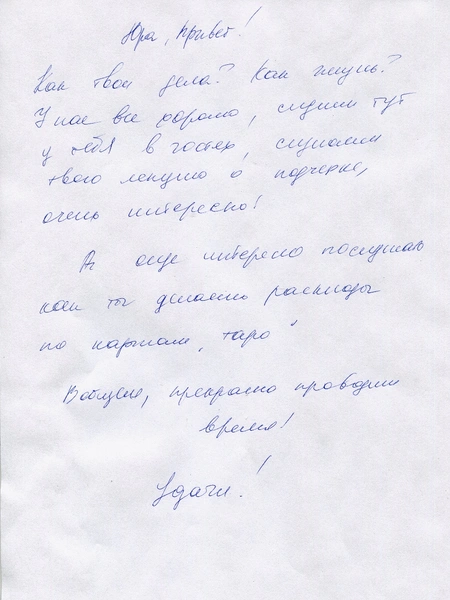 Юра, привет!
Как твои дела? Как жизнь?
У нас все хорошо, сидим тут
у тебя в гостях, слушаем
твою лекцию о подчерке,
очень интересно!
А еще интересно послушать
как ты делаешь расклады
по картам „таро“
Вобщем, прекрасно проводим
время!
Удачи!